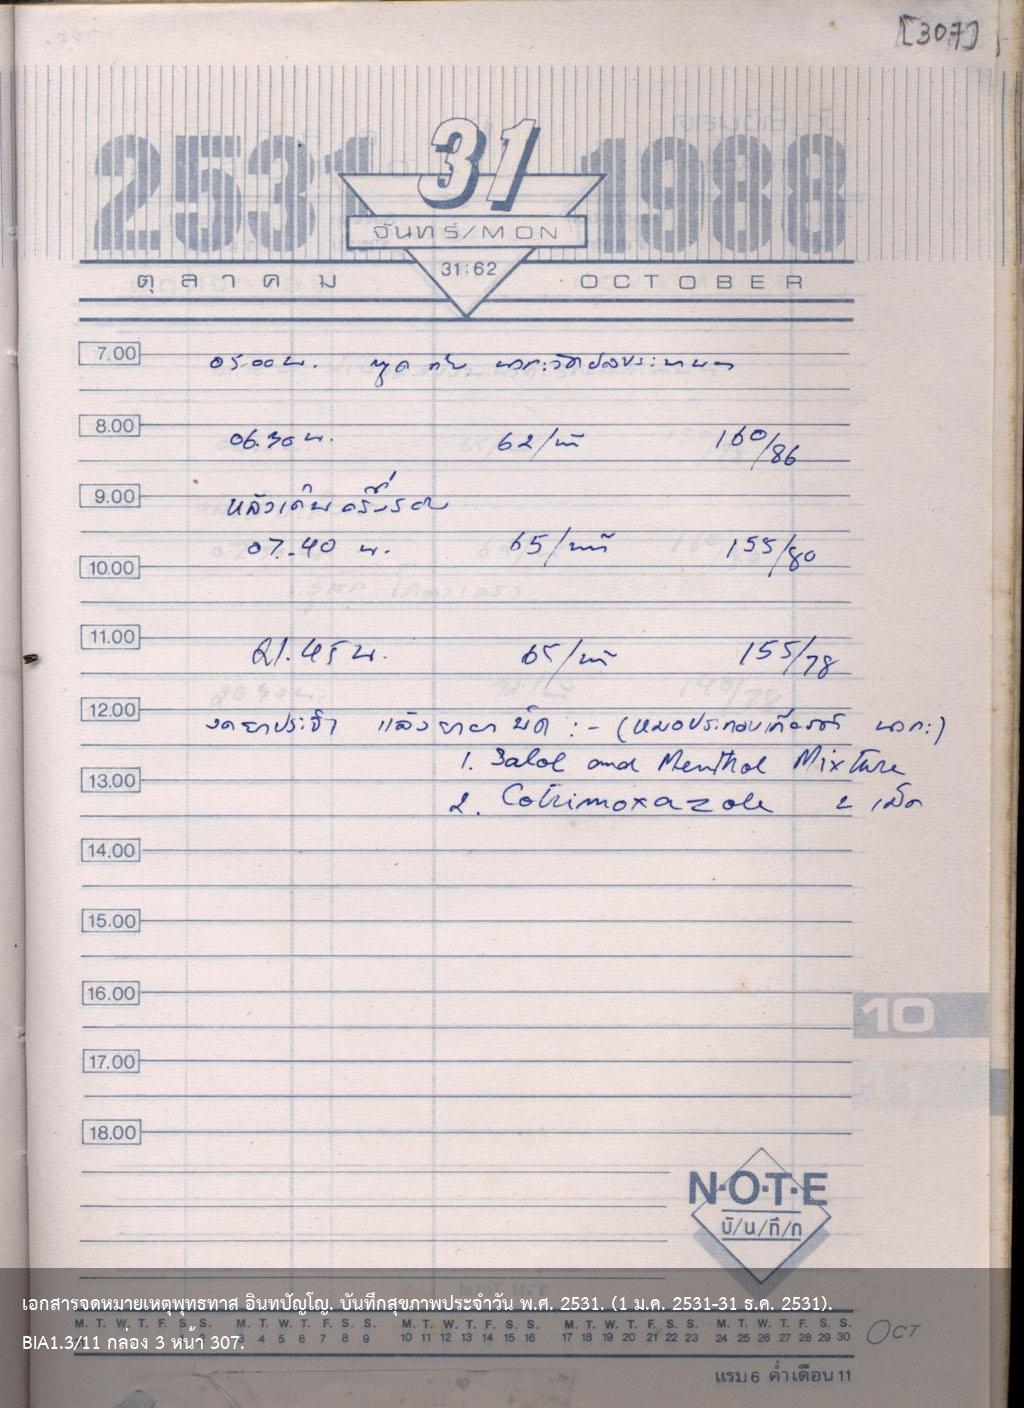 [307]
2531 31 1988
จันทร์/MON
31:62
ตุลาคม OCTOBER
7.00
05.00 น. พูด กับ
8.00
06.30 น. 62/นาที 160/86
9.00
หลังเดินครึ่ง
07.40 น. 65/นาที 155/80
10.00
11.00
21.45 น. 65/นาที 155/78
12.00
งดยาประจำ แล้ว : - (หมอประกอบเกียรติ
1. Salol and Menthol Mixture
13.00
2. Cotrimoxazole 2 เม็ด
14.00
15.00
16.00
10
17.00
18.00
N·O·T·E
บั/น/ทึ/ก
เอกสารจดหมายเหตุพุทธทาส อินทปัญโญ. บันทึกสุขภาพประจำวัน พ.ศ. 2531. (1 ม.ค. 2531-31 ธ.ค. 2531).
M. T. W. T. F. S. S. M. T. W. T. F. S. S. M. T. W. T. F. S. S. M. T. W. T. F. S. S. M. T. W. T. F. S. S.
BIA1.3/11 กล่อง 3 หน้า 307.
3 4 5 6 7 8 9 10 11 12 13 14 15 16 17 18 19 20 21 22 23 24 25 26 27 28 29 30 OCT
แรม 6 ค่ำ เดือน 11